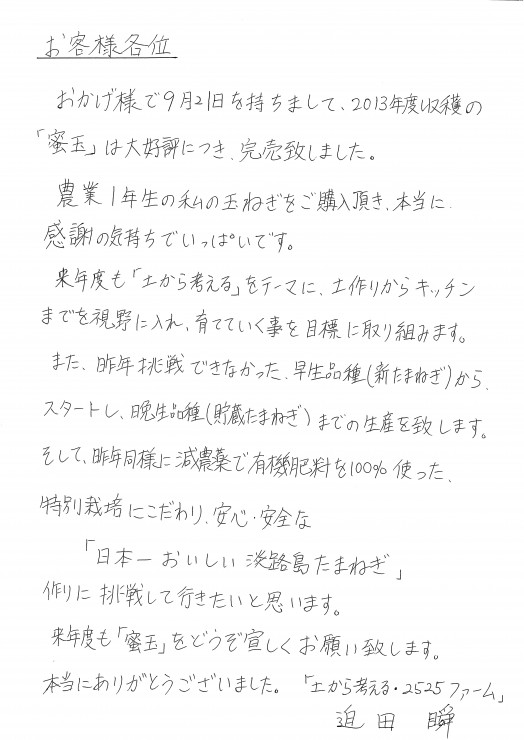 お客様各位
おかげ様で9月21日を持ちまして、2013年度収穫の
「蜜玉」は大好評につき、完売致しました。
農業1年生の私の玉ねぎをご購入頂き、本当に
感謝の気持ちでいっぱいです。
来年度も「土から考える」をテーマに、土作りからキッチン
までを視野に入れ、育てていく事を目標に取り組みます。
また、昨年挑戦できなかった、早生品種(新たまねぎ)から、
スタートし、晩生品種(貯蔵たまねぎ)までの生産を致します。
そして、昨年同様に減農薬で有機肥料を100%使った、
特別栽培にこだわり、安心・安全な
「日本一おいしい淡路島たまねぎ」
作りに挑戦して行きたいと思います。
来年度も「蜜玉」をどうぞ宜しくお願い致します。
本当にありがとうございました。「土から考える・2525ファーム」
迫田 瞬